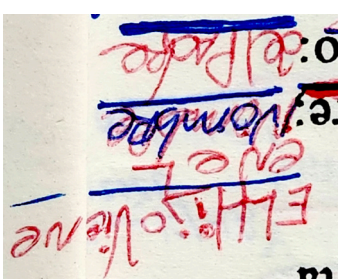 EL Hijo Viene
en eL
Nombre
del Padre